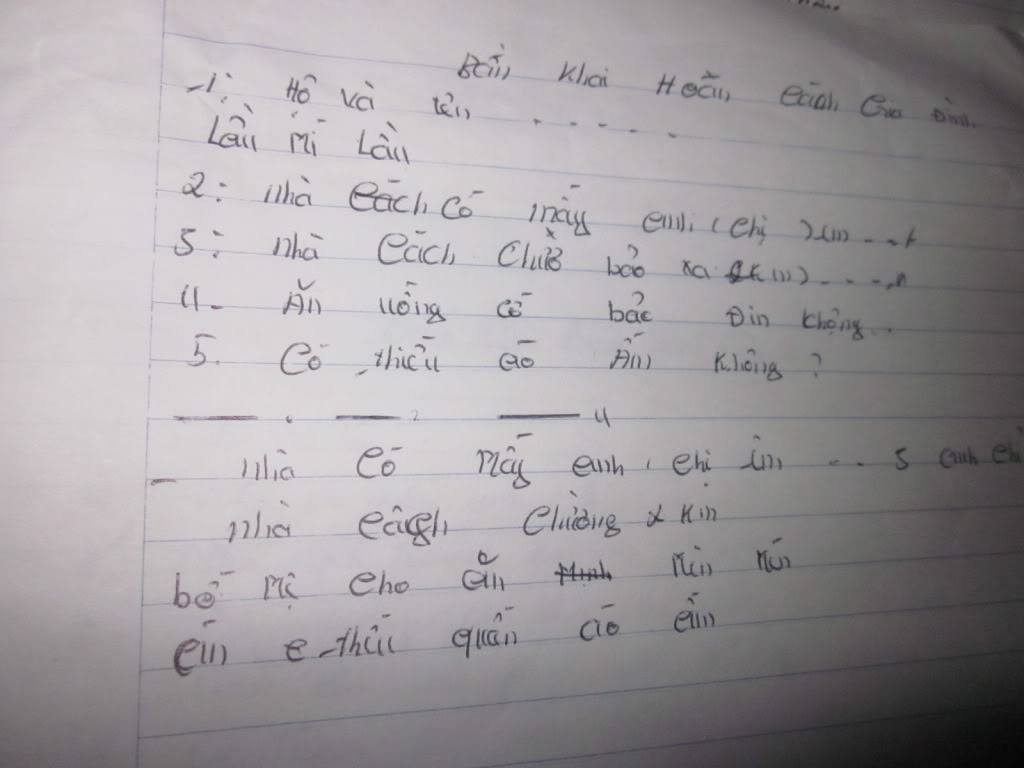 Bản Khai Hoàn cảnh Gia Đình
1: Họ và tên .....
Lần Mí Lần
2: nhà cách có mấy anh, (chị) em ...
3: nhà cách bảo xa (km) ....
4- Ăn uống có bảo Đin không..
5. Có thiếu áo Ấm không?
- nhà có mấy anh, chị em ... 5 anh chị
nhà cách km
bố mẹ cho ăn Mèn Mén
em e thiếu quần áo ấm